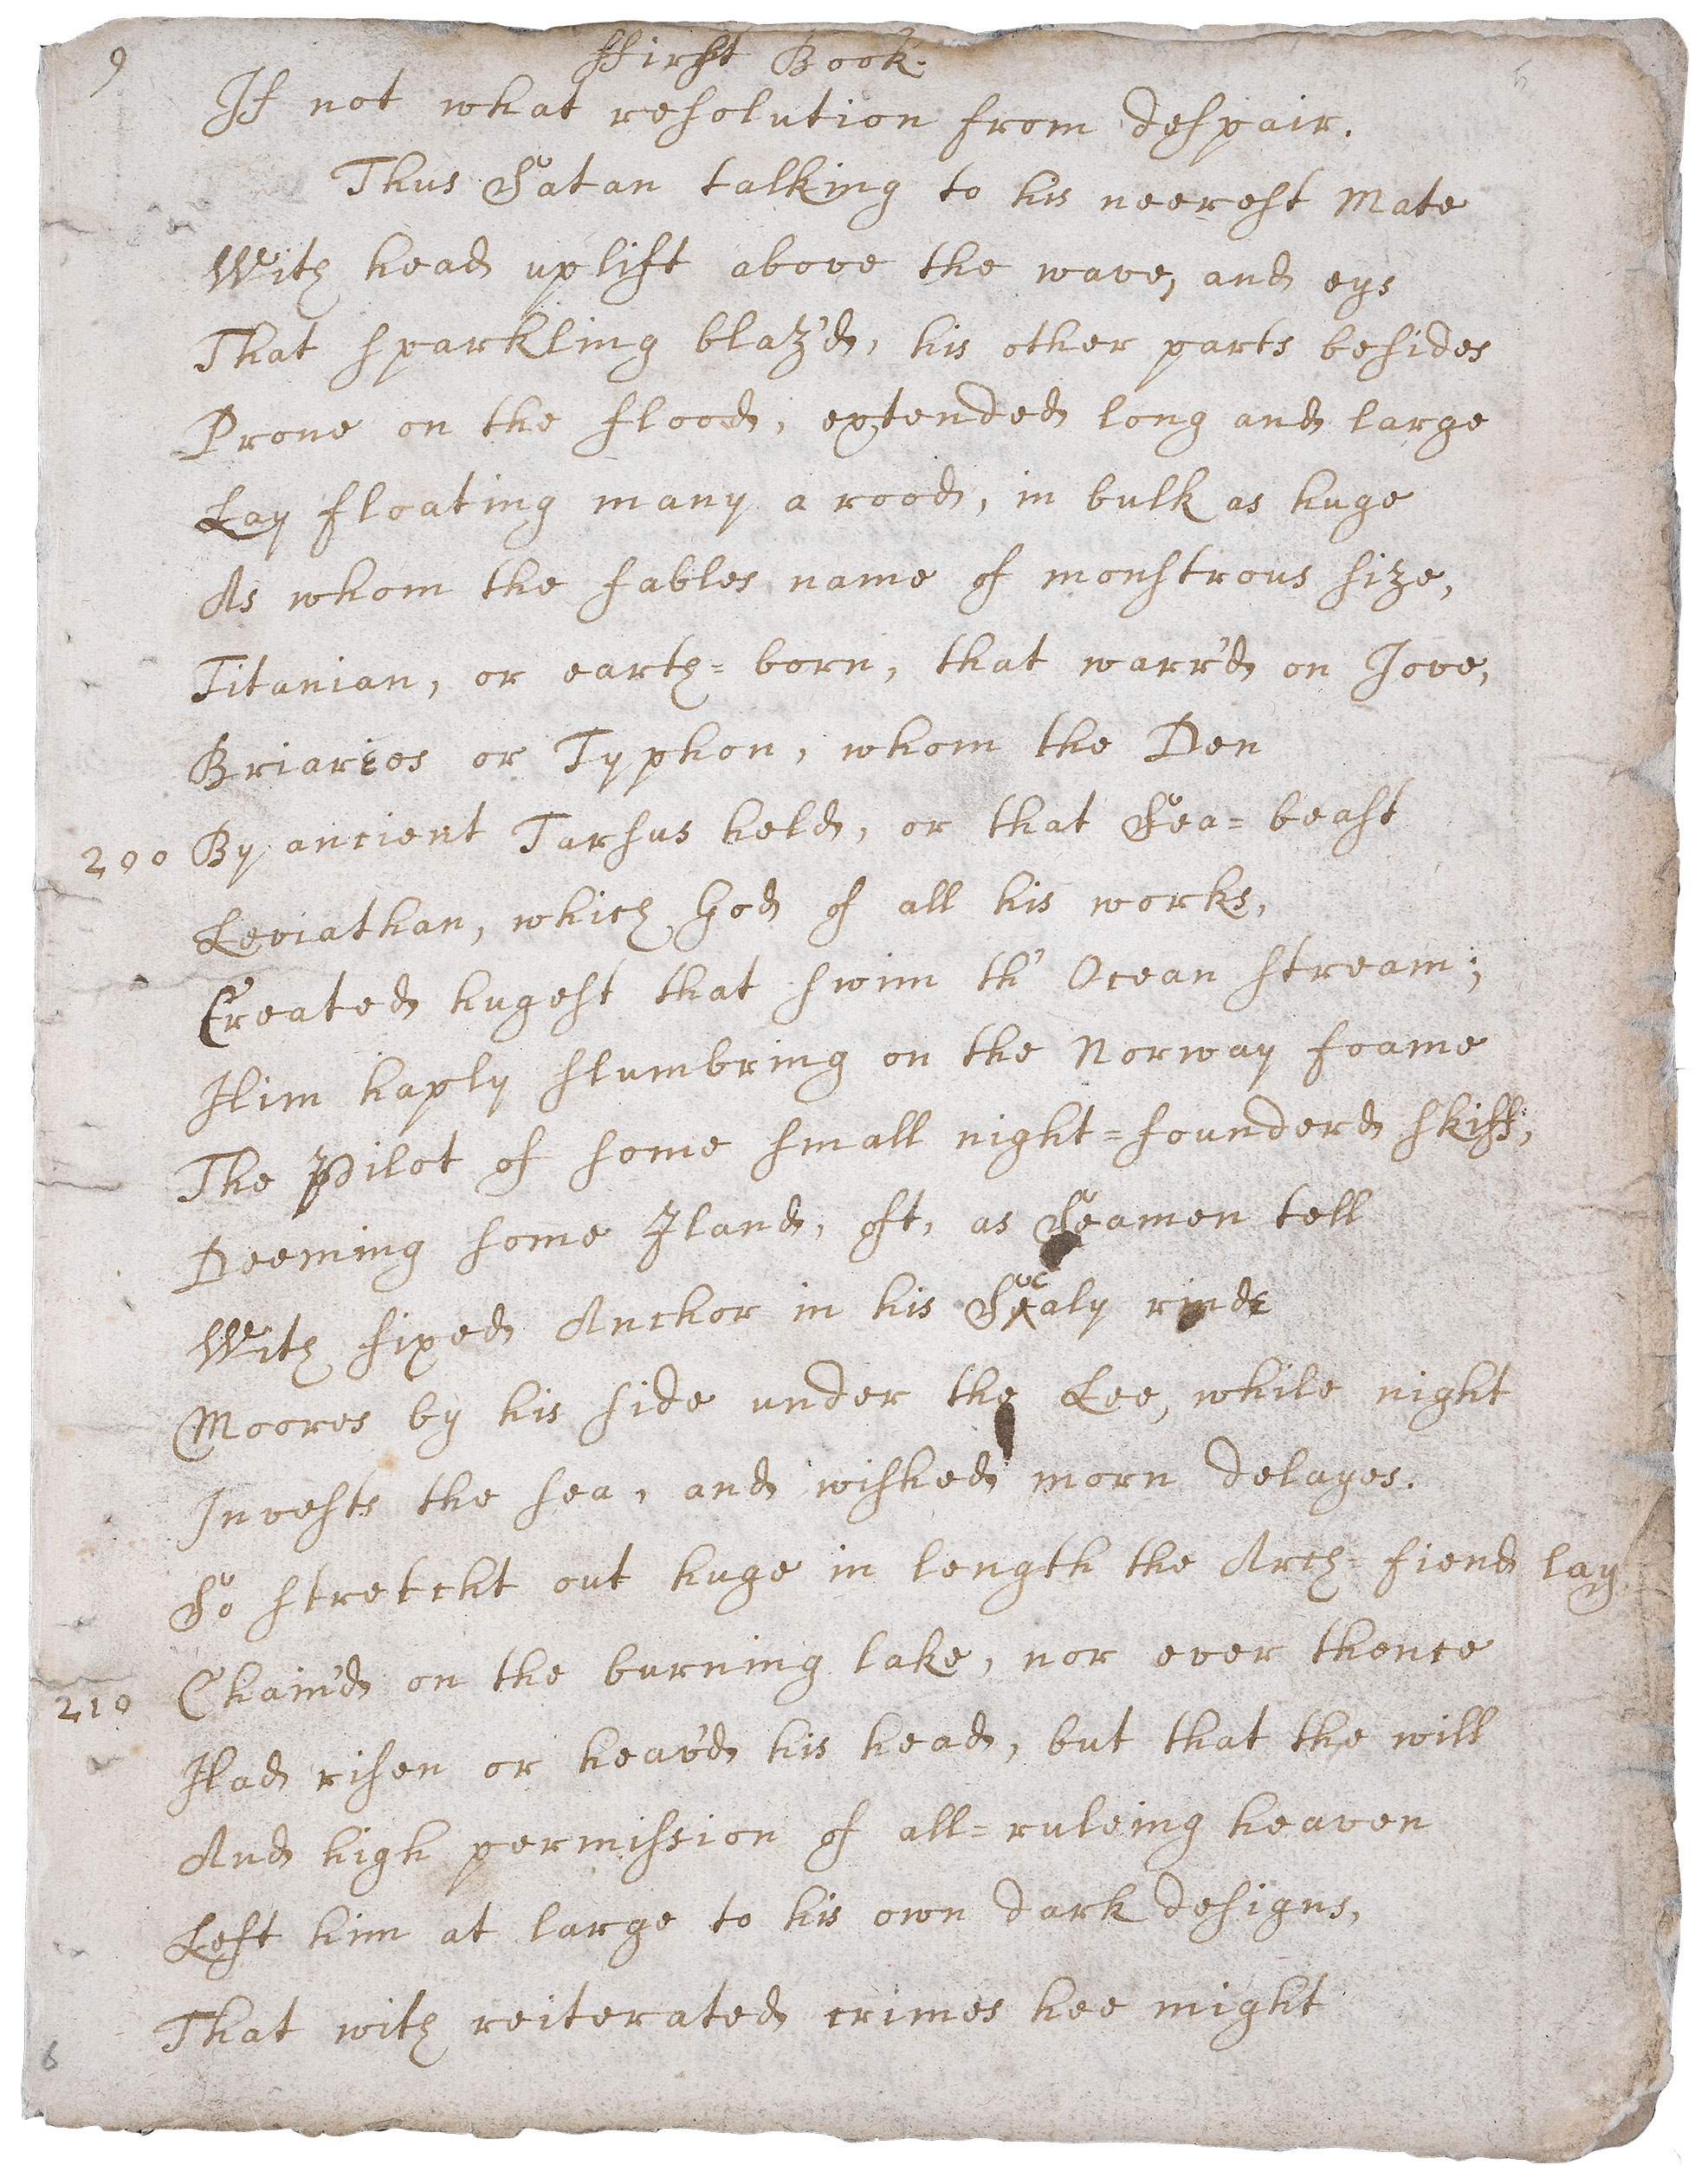 9
ffirst Book.
If not what resolution from despair.
Thus Satan talking to his neerest Mate
With head uplift above the wave, and eys
That sparkling blaz'd, his other parts besides
Prone on the flood, extended long and large
Lay floating many a rood, in bulk as huge
As whom the fables name of monstrous size,
Titanian, or earth=born, that warr'd on Jove,
Briarios or Typhon, whom the Den
200 By ancient Tarsus held, or that Sea=beast
Leviathan, which God of all his works,
Created hugest that swim th' Ocean stream;
Him haply slumbring on the Norway foame
The Pilot of some small night=founderd skiff,
Deeming some Iland, oft, as Seamen tell
With fixed Anchor in his Scaly rinde
Moores by his side under the Lee, while night
Invests the sea, and wished morn delayes.
So stretcht out huge in length the Arch=fiend lay
210 Chain'd on the burning lake, nor ever thence
Had risen or heav'd his head, but that the will
And high permission of all=ruleing heaven
Left him at large to his own dark designs,
That with reiterated crimes hee might
6